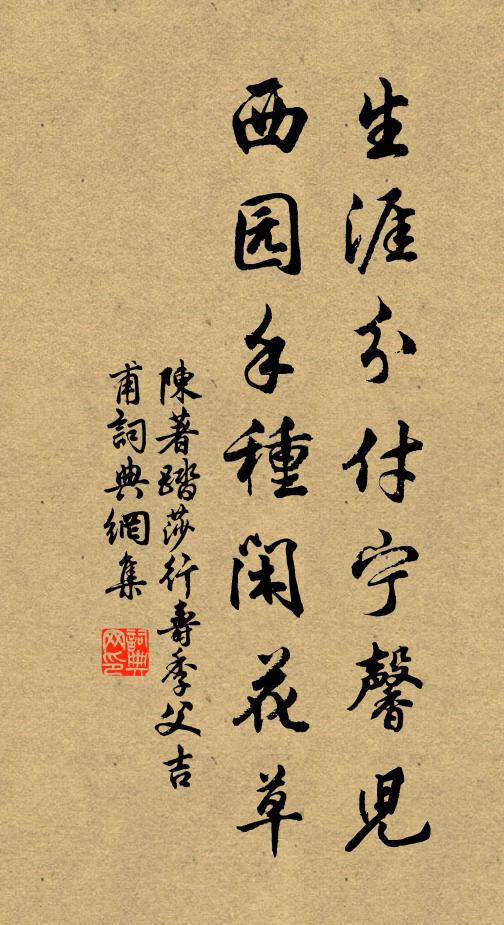 生涯分付宁馨児
西园手種閑花草
陳著踏莎行壽季父吉
甫詞典網集
詞典網印